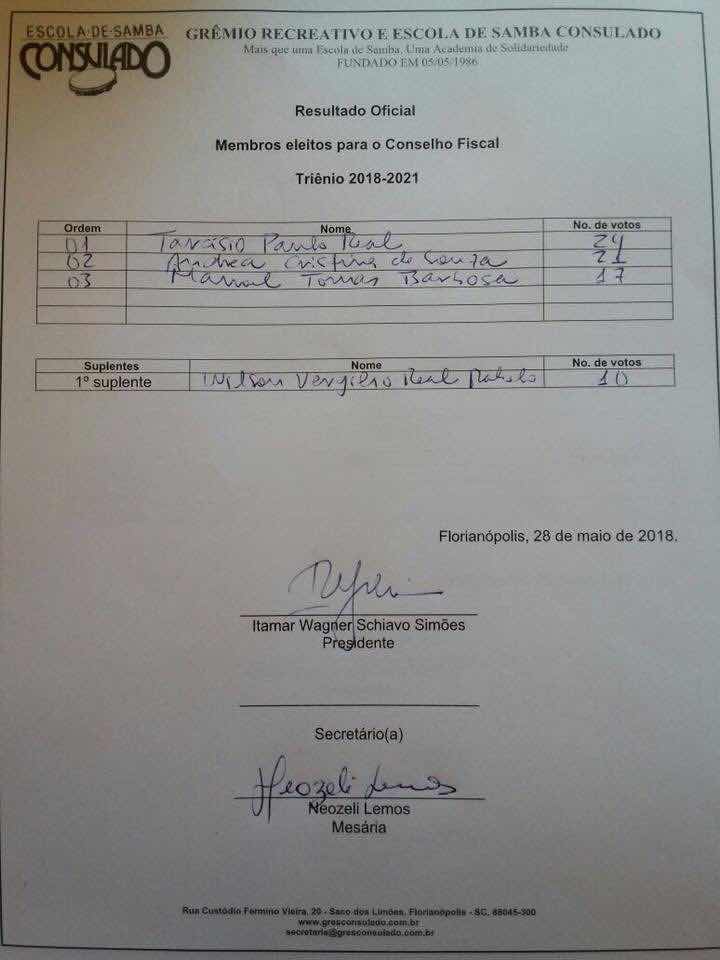 ESCOLA-DE-SAMBA
CONSULADO
GRÊMIO RECREATIVO E ESCOLA DE SAMBA CONSULADO
Mais que uma Escola de Samba, Uma Academia de Solidariedade
FUNDADO EM 05/05/1986
Resultado Oficial
Membros eleitos para o Conselho Fiscal
Triênio 2018-2021
Ordem Nome No. de votos
01 Tarcísio Paulo Real 24
02 Andrea Cristina de Souza 21
03 Tomas Barbosa 17
Suplentes Nome No. de votos
1º suplente Wilson Vergilio Real 10
Florianópolis, 28 de maio de 2018.
Itamar Wagner Schiavo Simões
Presidente
Secretário(a)
Neozeli Lemos
Neozeli Lemos
Mesária
Rua Custódio Fermino Vieira, 20 - Saco dos Limões, Florianópolis - SC, 88045-300
www.gresconsulado.com.br
secretaria@gresconsulado.com.br